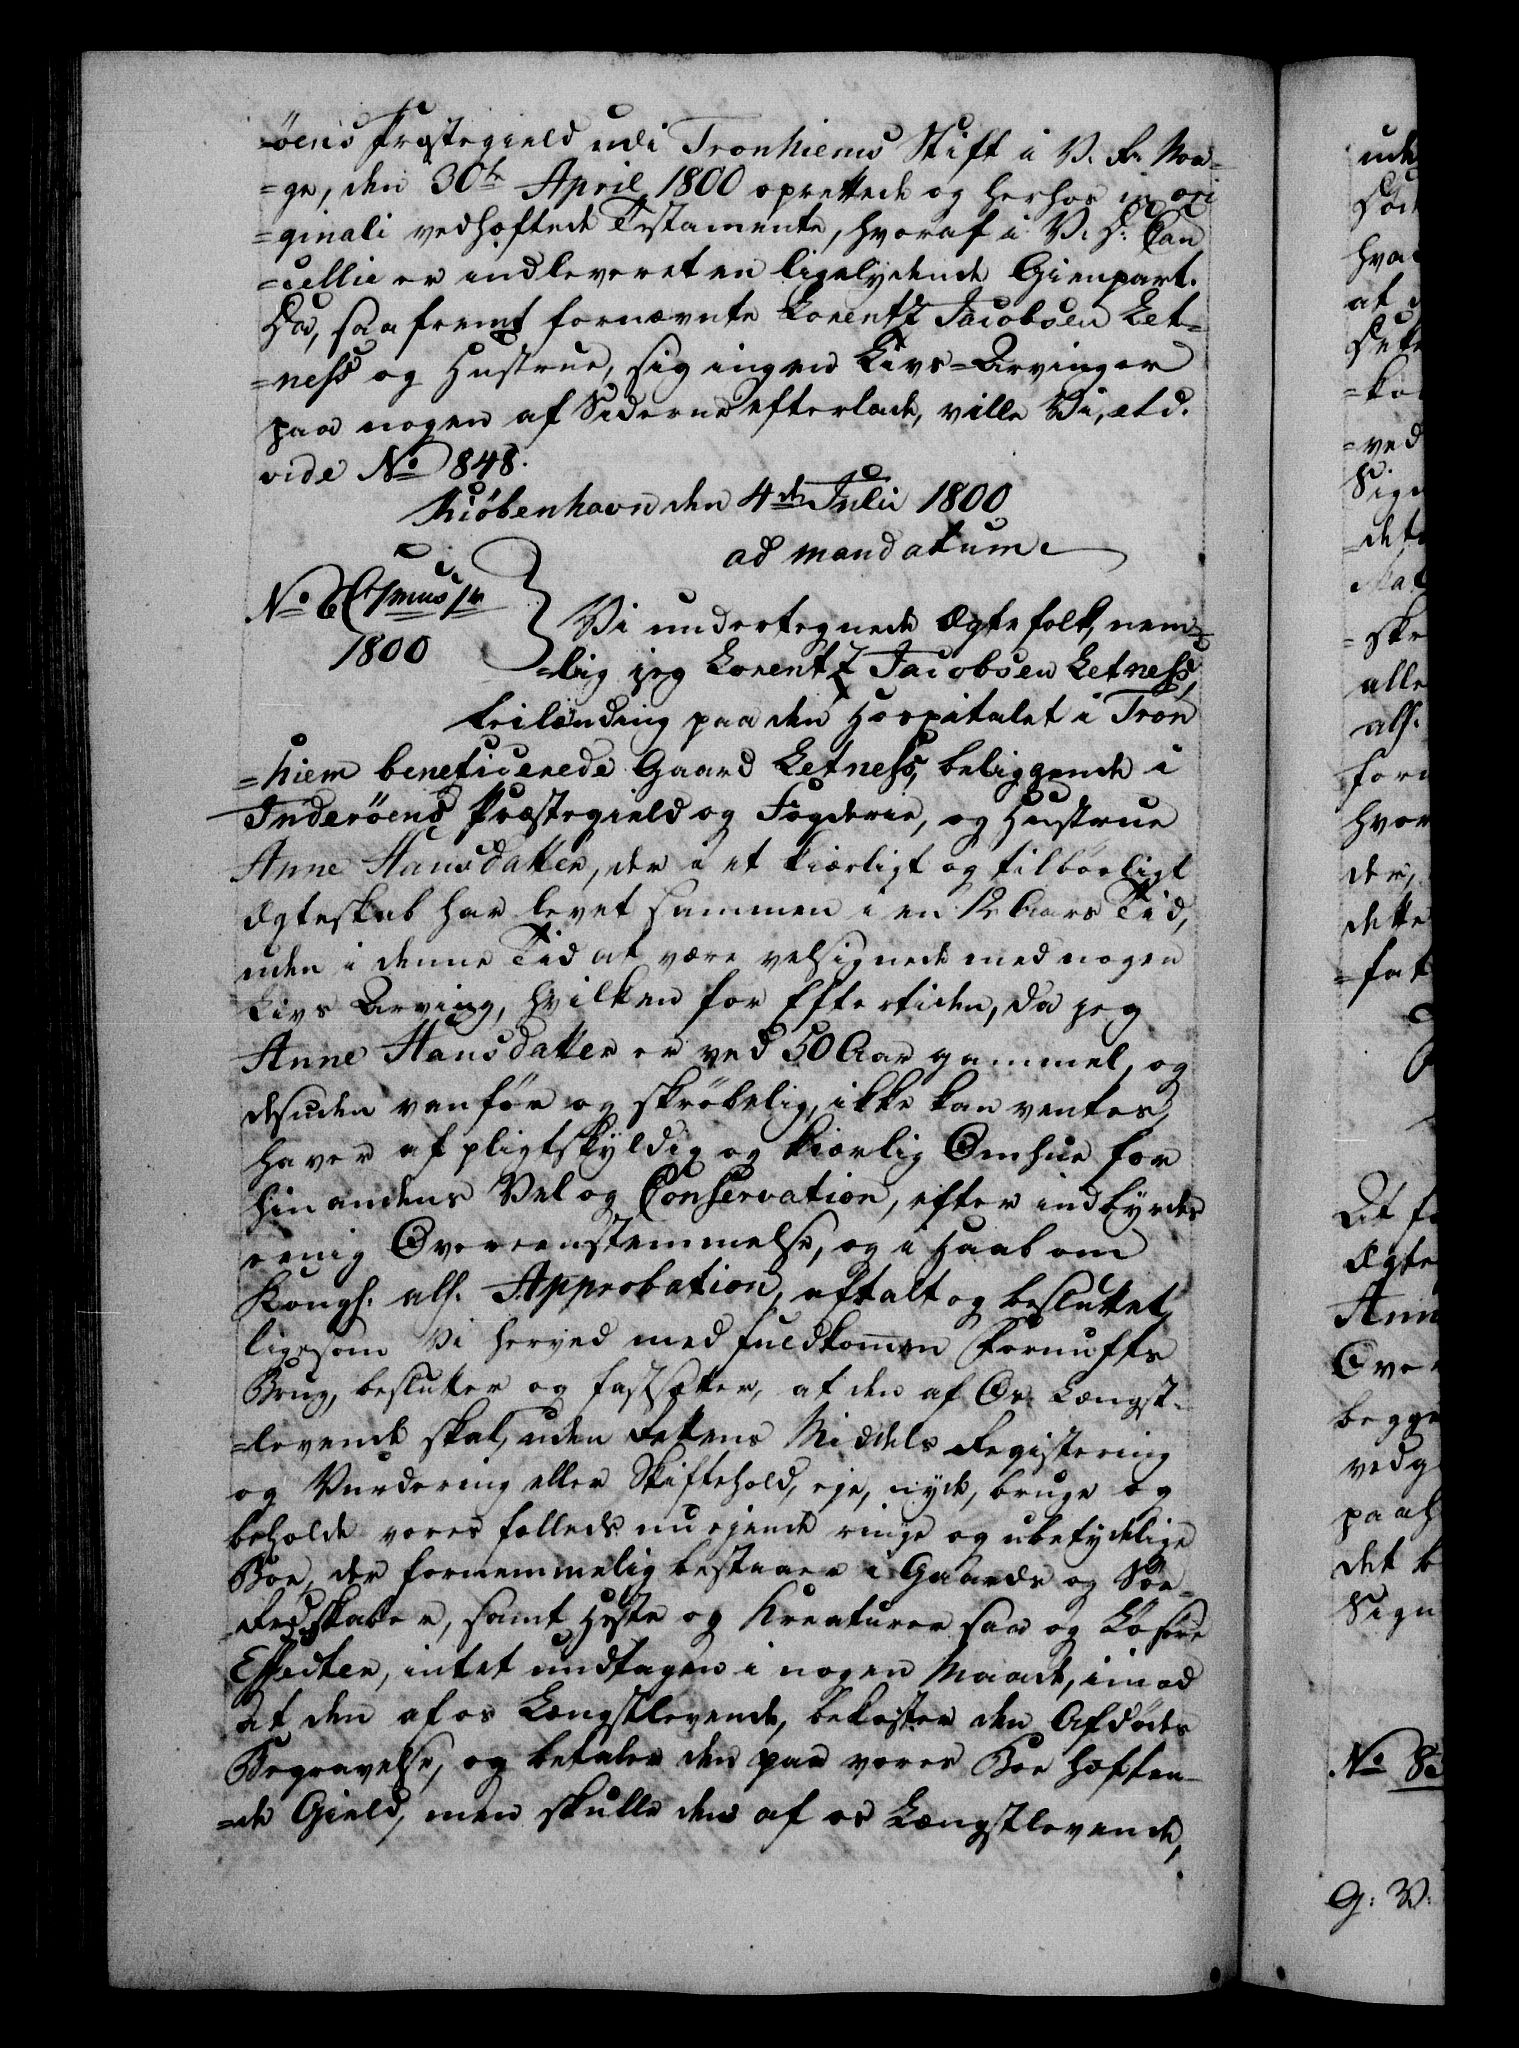 =öens Præstegield udi Tronhiems Stift i V. R. Nor-
=ge, den 30te April 1800 oprettede og herhos in ori
=ginali vedhæftede Testamente, hvoraf i V. D: Can
=cellie er indleveret en ligelydende Gienpart.
Da, saafremt fornævnte Lorentz Jacobsen Let-
=ness og Hustrue, sig ingen Livs=Arvinger
paa nogen af Siderne efterlade, ville Vi, etc.
vide No 848.
Kiöbenhavn den 4de Julii 1800
ad mandatum
No 6
1800
Vi undertegnede Ægtefolk, nem-
=lig jeg Lorentz Jacobsen Letness,
Leilænding paa den Hospitalet i Tron
=hiem beneficerede Gaard Letness, beliggende i
Inderöens Præstegield og Fogderie, og Hustrue
Anne Hansdatter, der i et kiærligt og tilbörligt
Ægteskab har levet sammen i en 12 Aars Tid,
uden i denne Tid at være velsignede med nogen
Livs Arving, hvilken for Eftertiden, da jeg
Anne Hansdatter er ved 50 Aar gammel, og
desuden vanför og skröbelig, ikke kan ventes,
haver af pligtskyldig og kiærlig Omhue for
hinandens Vel og Conservation, efter indbyrdes
eenig Overeenstemmelse, og i Haab om
Kongl. all. Approbation, aftalt og besluttet,
ligesom Vi herved med fuldkommen Fornufts
Brug, beslutter og fastsætter, at den af Os Længst-
=levende skal, uden Rettens Middels Registering
og Vurdering eller Skiftehold, eje, nyde, bruge og
beholde vores fælleds nu ejende ringe og ubetydelige
Boe, der fornemmelig bestaaer i Gaards og Söe-
Redskaber, samt Heste og Kreaturer saa og Lösöre
Effecter, intet undtagen i nogen Maade, imod
at den af os Længstlevende, bekoster den Afdödes
Begravelse, og betaler den paa vores Boe hæften-
=de Gield, men skulle den af os Længstlevende,